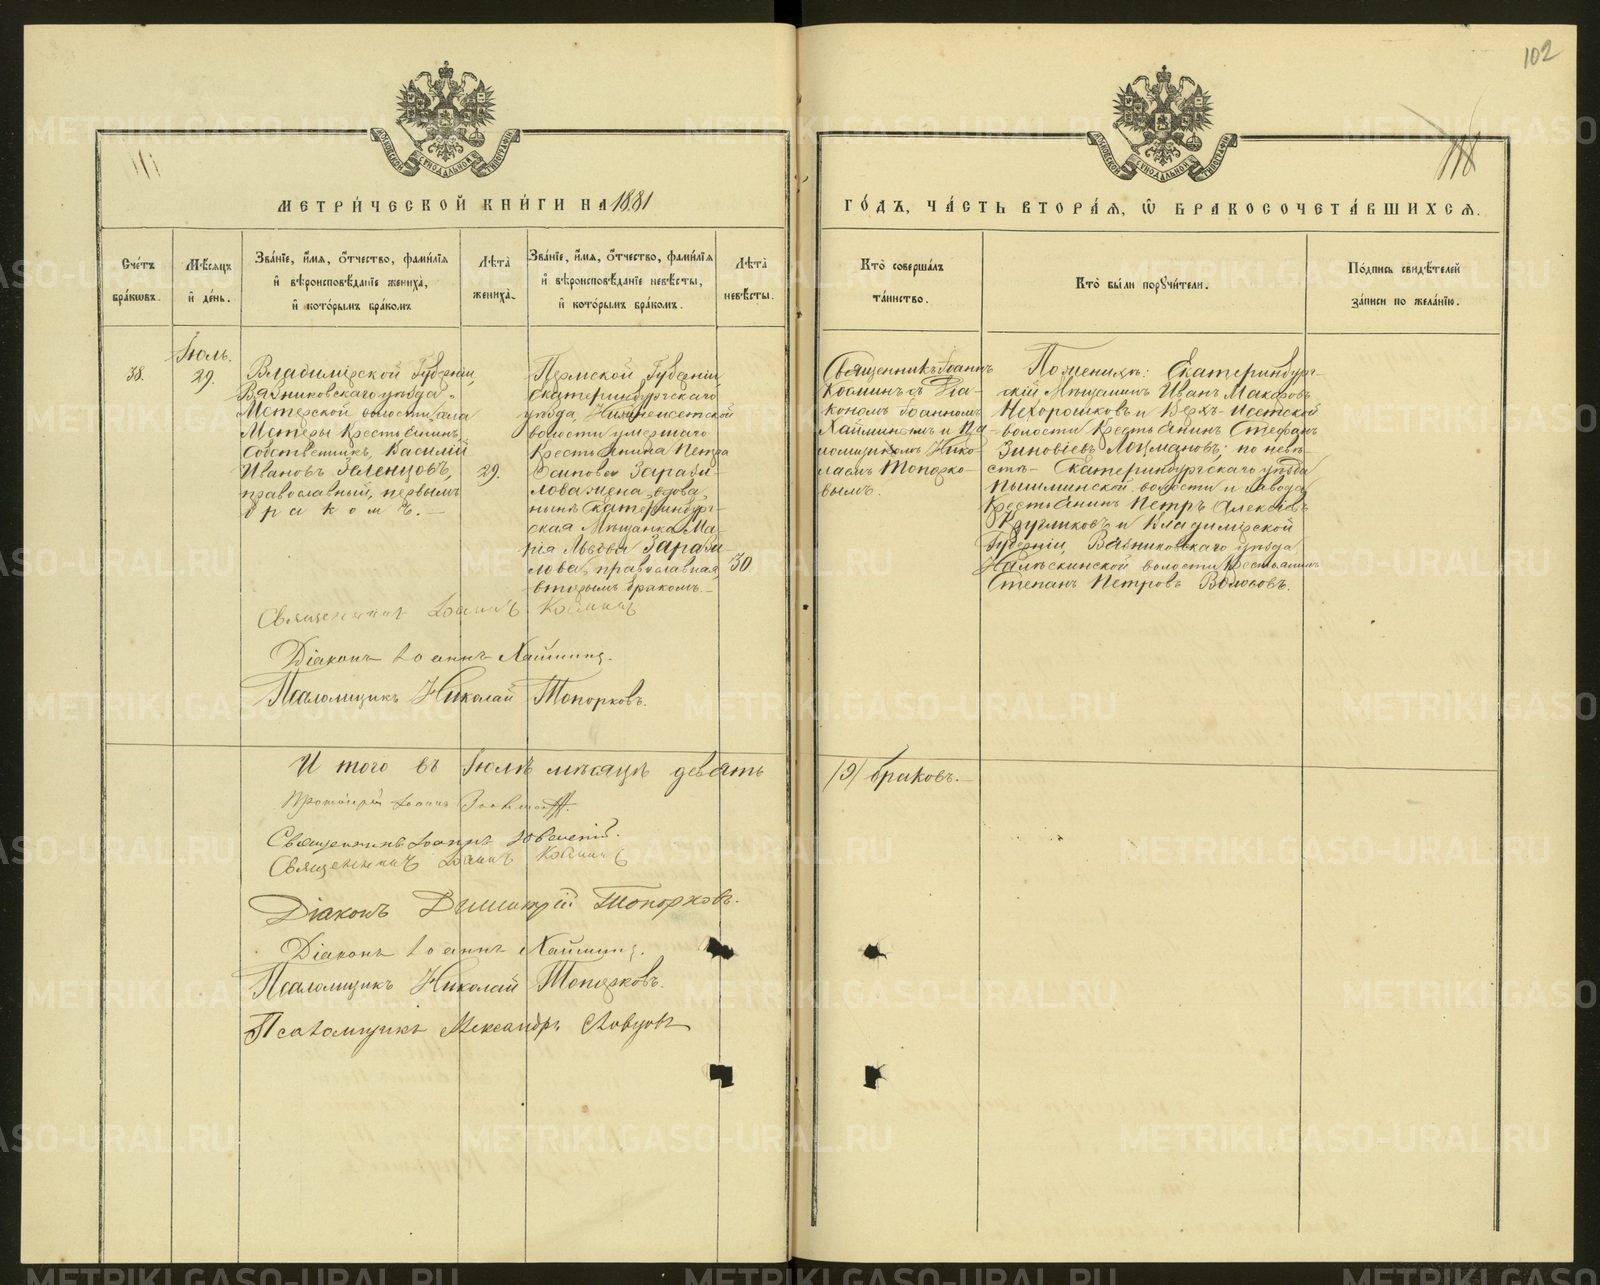 102
111
118
МОСКОВСКОЙ СѴНОДАЛЬНОЙ ТИПОГРАФІИ
МОСКОВСКОЙ СѴНОДАЛЬНОЙ ТИПОГРАФІИ
МЕТРИ́ЧЕСКОЙ КНИ́ГИ НА 1881
ГО́ДЪ, ЧА́СТЬ ВТОРА́Я, Ѡ҆ БРАКОСОЧЕТА́ВШИХСЯ.
Сче́тъ бра́кωвъ.
Мѣ́сяцъ и҆ де́нь.
Зва́нїе, и҆́мя, ѻ҆́тчество, фами́лїя
и҆ вѣроисповѣ́данїе жениха̀,
и҆ кото́рымъ бра́комъ
Лѣта̀ жениха̀.
Зва́нїе, и҆́мя, ѻ҆́тчество, фами́лїя
и҆ вѣроисповѣ́данїе невѣ́сты,
и҆ кото́рымъ бра́комъ.
Лѣта̀ невѣ́сты.
Кто̀ соверша́лъ
та́инство.
Кто̀ бы́ли порꙋчи́тели.
По́дпись свидѣ́телей
за́писи по жела́нїю.
38.
Іюль.
29.
Владимірской Губерніи,
Вязниковскаго уѣзда
Мстерской волости села
Мстеры Крестьянинъ
Собственникъ, Василій
Ивановъ Галенцовъ,
православный, первымъ
бракомъ.
29.
Пермской Губерніи,
Екатеринбургскаго
уѣзда, Нижнеисетской
волости умершаго
Крестьянина Петра
Осипова Зарази-
лова жена вдова,
нынѣ Екатеринбург-
ская Мѣщанка Ма-
рія Львова Зарази-
лова, православная,
вторымъ бракомъ.
30.
Священникъ Іоаннъ
Косминъ съ Діа-
кономъ Іоанномъ
Хайминымъ и Пса-
ломщикомъ Нико-
лаемъ Топорко-
вымъ.
По женихѣ: Екатеринбург-
скій Мѣщанинъ Иванъ Макаровъ
Нехорошковъ и Верхъ-Исетской
волости Крестьянинъ Стефанъ
Зиновіевъ Лоцмановъ; по невѣ-
стѣ - Екатеринбургскаго уѣзда
Пышминской волости и завода
Крестьянинъ Петръ Алексѣевъ
Кругликовъ и Владимірской
Губерніи, Вязниковскаго уѣзда
волости Крестьянинъ
Степанъ Петровъ Волковъ.
Священникъ Іоаннъ Косминъ
Діаконъ Іоаннъ Хайминъ.
Псаломщикъ Николай Топорковъ.
И того въ Іюлѣ мѣсяцѣ девять
/9/ браковъ.
Протоіерей Іоаннъ
Священникъ Іоаннъ
Священникъ Іоаннъ Косминъ
Діаконъ Димитрій Топорковъ.
Діаконъ Іоаннъ Хайминъ.
Псаломщикъ Николай Топорковъ.
Псаломщикъ Александръ Ловцовъ
METRIKI.GASO-URAL.RU